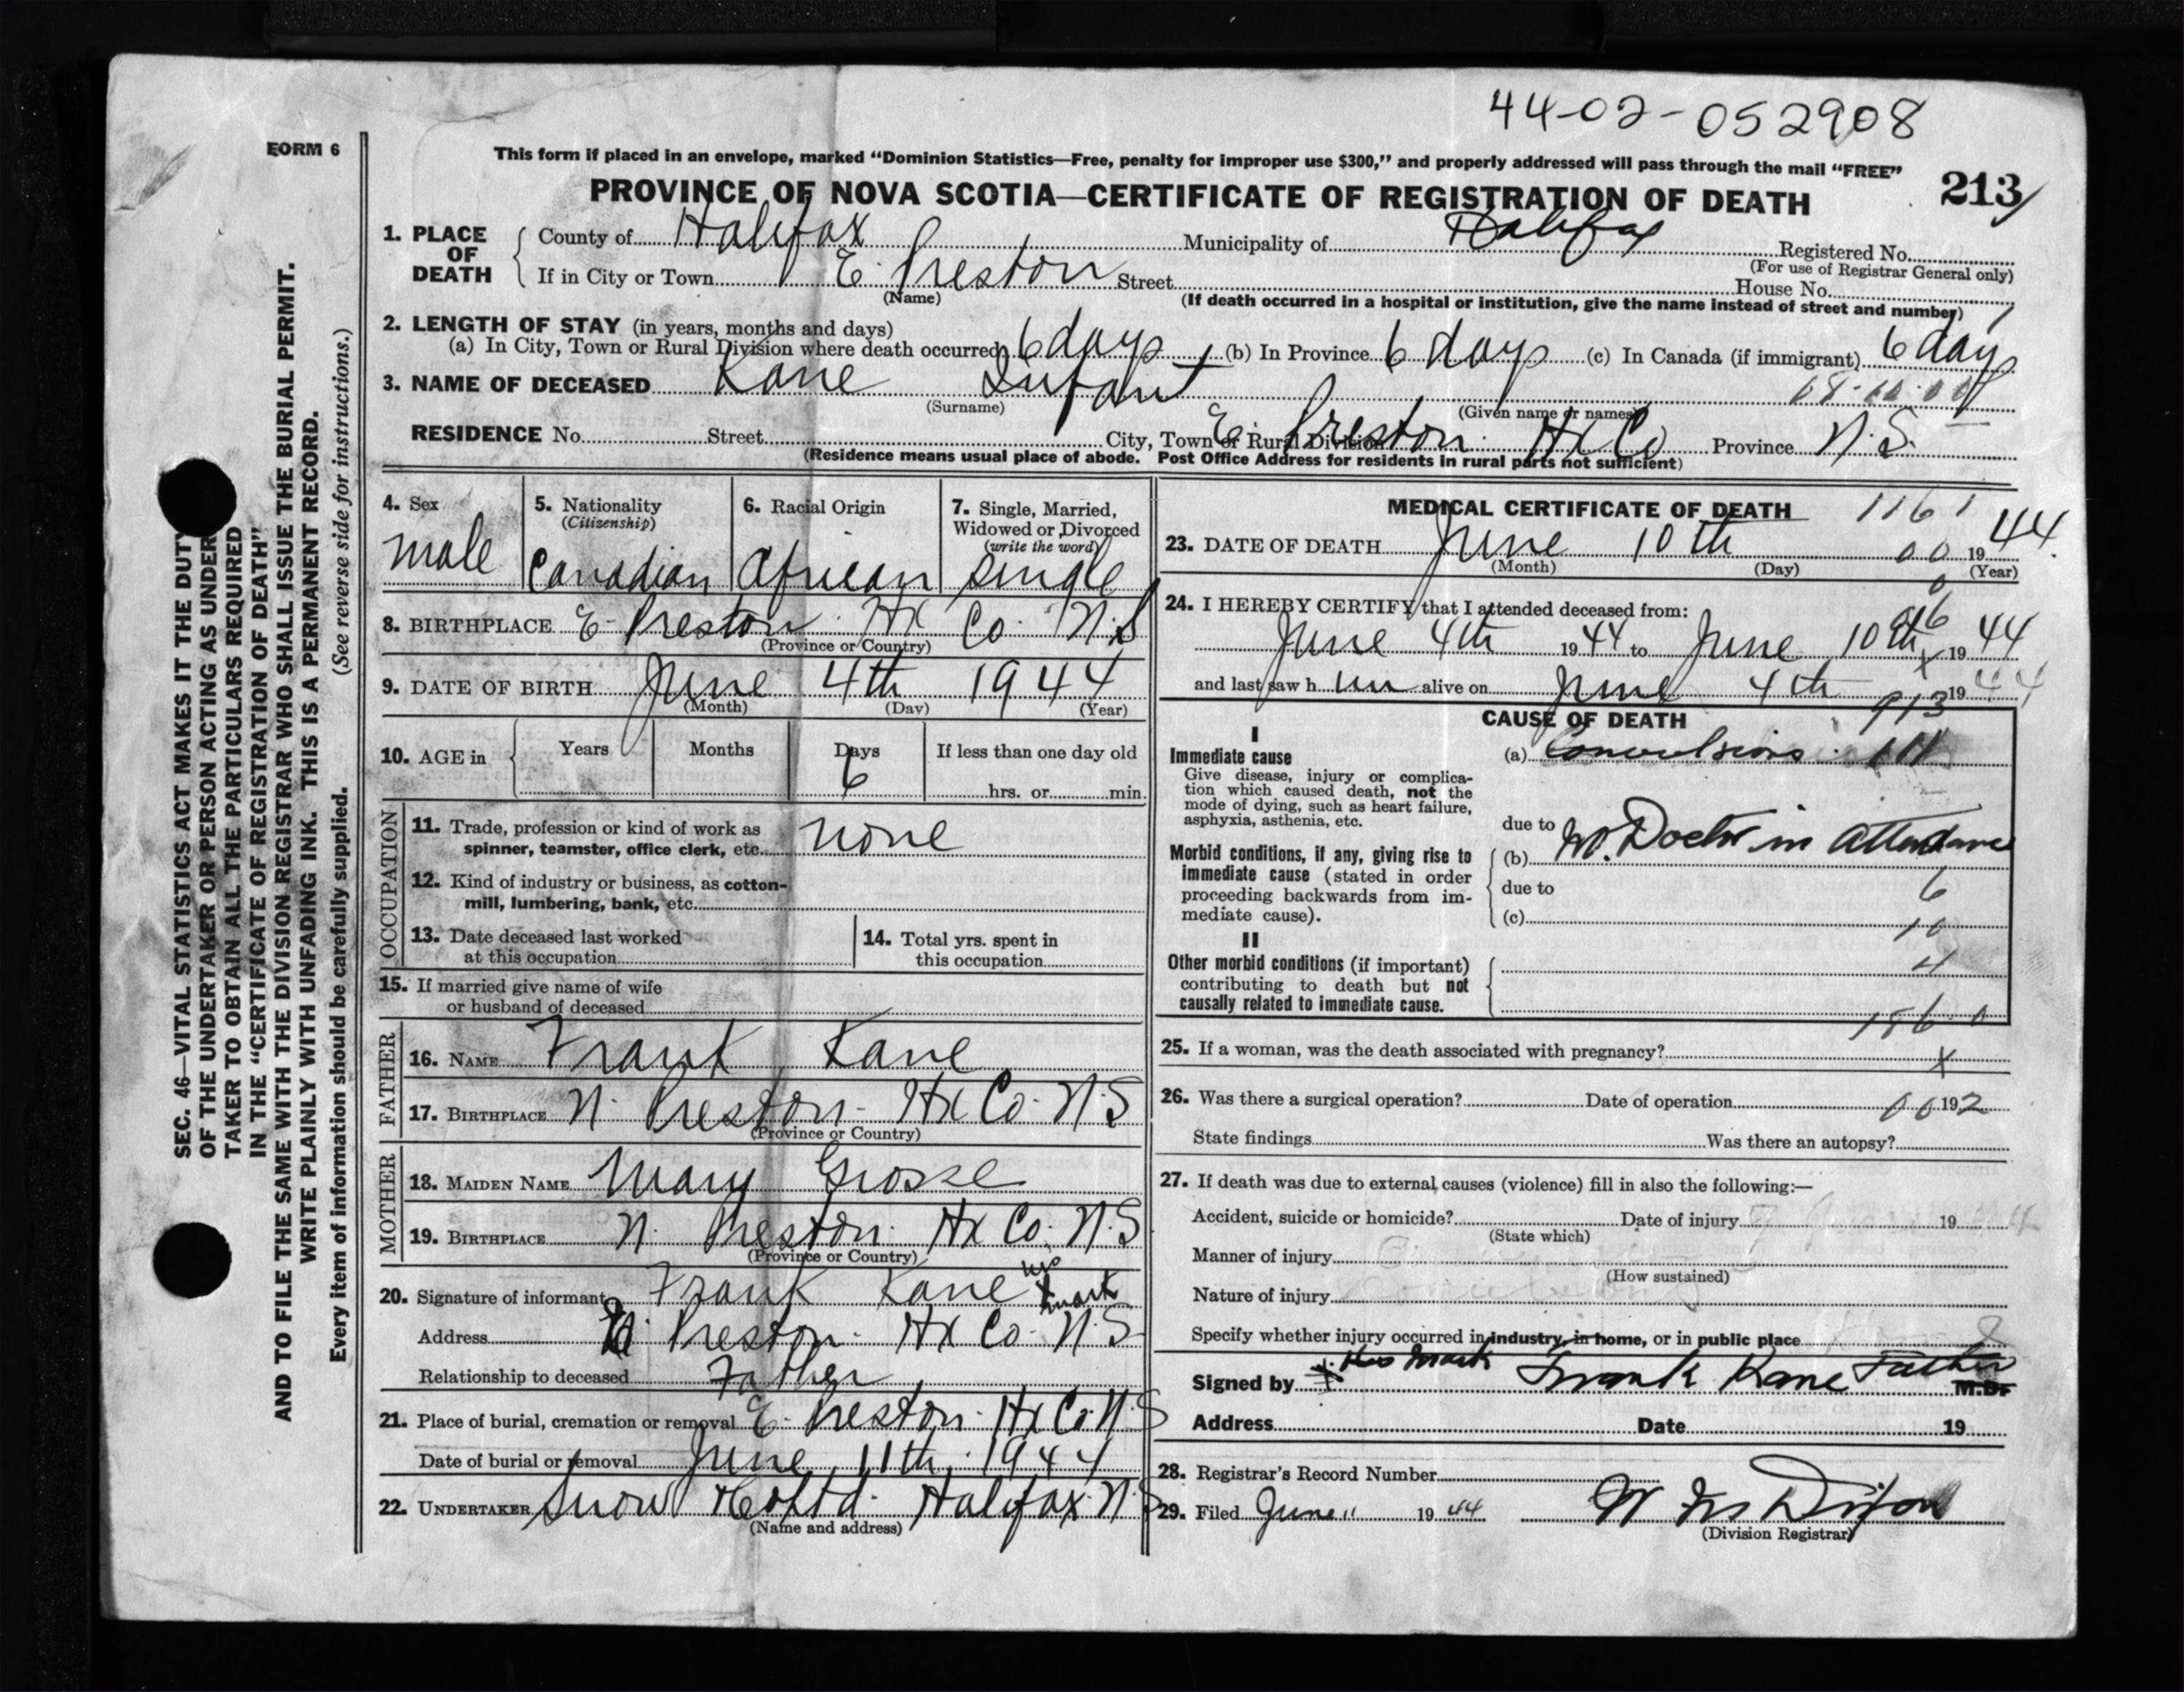 44-02-052908
FORM 6
This form if placed in an envelope, marked “Dominion Statistics—Free, penalty for improper use $300,” and properly addressed will pass through the mail “FREE”
PROVINCE OF NOVA SCOTIA—CERTIFICATE OF REGISTRATION OF DEATH
213
1. PLACE OF DEATH
County of Halifax Municipality of Halifax Registered No.
(For use of Registrar General only)
If in City or Town E. Preston Street House No.
(Name) (If death occurred in a hospital or institution, give the name instead of street and number)
2. LENGTH OF STAY (in years, months and days)
(a) In City, Town or Rural Division where death occurred 6 days (b) In Province 6 days (c) In Canada (if immigrant) 6 days
3. NAME OF DECEASED Kane Infant
(Surname) (Given name or names)
RESIDENCE No. Street City, Town or Rural Division E. Preston Hx Co Province N.S.
(Residence means usual place of abode. Post Office Address for residents in rural parts not sufficient)
4. Sex
male
5. Nationality
(Citizenship)
Canadian
6. Racial Origin
African
7. Single, Married,
Widowed or Divorced
(write the word)
single
8. BIRTHPLACE E. Preston Hx Co. N.S
(Province or Country)
9. DATE OF BIRTH June 4th 1944
(Month) (Day) (Year)
10. AGE in Years Months Days If less than one day old
6 hrs. or min.
OCCUPATION
11. Trade, profession or kind of work as
spinner, teamster, office clerk, etc. none
12. Kind of industry or business, as cotton-
mill, lumbering, bank, etc.
13. Date deceased last worked
at this occupation
14. Total yrs. spent in
this occupation
15. If married give name of wife
or husband of deceased
FATHER
16. NAME Frank Kane
17. BIRTHPLACE N. Preston Hx Co. N.S
(Province or Country)
MOTHER
18. MAIDEN NAME Mary Grosse
19. BIRTHPLACE N. Preston Hx Co. N.S
(Province or Country)
20. Signature of informant Frank Kane his x mark
Address Preston Hx Co. N.S
Relationship to deceased Father
21. Place of burial, cremation or removal E. Preston Hx Co. N.S
Date of burial or removal June 11th, 1944
22. UNDERTAKER Snow & Co Ltd. Halifax N.S
(Name and address)
MEDICAL CERTIFICATE OF DEATH
1161
23. DATE OF DEATH June 10th 1944
(Month) (Day) (Year)
24. I HEREBY CERTIFY that I attended deceased from:
June 4th 1944 to June 10th 1944
and last saw h im alive on June 4th 1944
913
CAUSE OF DEATH
I
Immediate cause
Give disease, injury or complica-
tion which caused death, not the
mode of dying, such as heart failure,
asphyxia, asthenia, etc.
(a) Convulsions
due to
Morbid conditions, if any, giving rise to
immediate cause (stated in order
proceeding backwards from im-
mediate cause).
(b) No. Doctor in attendance
due to 6
(c) 10
II
Other morbid conditions (if important)
contributing to death but not
causally related to immediate cause.
4
25. If a woman, was the death associated with pregnancy? x
26. Was there a surgical operation? Date of operation 192
State findings Was there an autopsy?
27. If death was due to external causes (violence) fill in also the following:—
Accident, suicide or homicide? Date of injury 19
(State which)
Manner of injury
(How sustained)
Nature of injury
Specify whether injury occurred in industry, in home, or in public place
Signed by x His mark Frank Kane Father M.D.
Address Date 19
28. Registrar's Record Number
29. Filed June 11 1944
(Division Registrar)
SEC. 46—VITAL STATISTICS ACT MAKES IT THE DUTY
OF THE UNDERTAKER OR PERSON ACTING AS UNDER
TAKER TO OBTAIN ALL THE PARTICULARS REQUIRED
IN THE “CERTIFICATE OF REGISTRATION OF DEATH”
AND TO FILE THE SAME WITH THE DIVISION REGISTRAR WHO SHALL ISSUE THE BURIAL PERMIT.
WRITE PLAINLY WITH UNFADING INK. THIS IS A PERMANENT RECORD.
Every item of information should be carefully supplied. (See reverse side for instructions.)